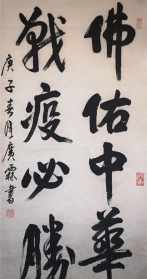 佛佑中華
戰疫必勝
庚子春月廣霖書